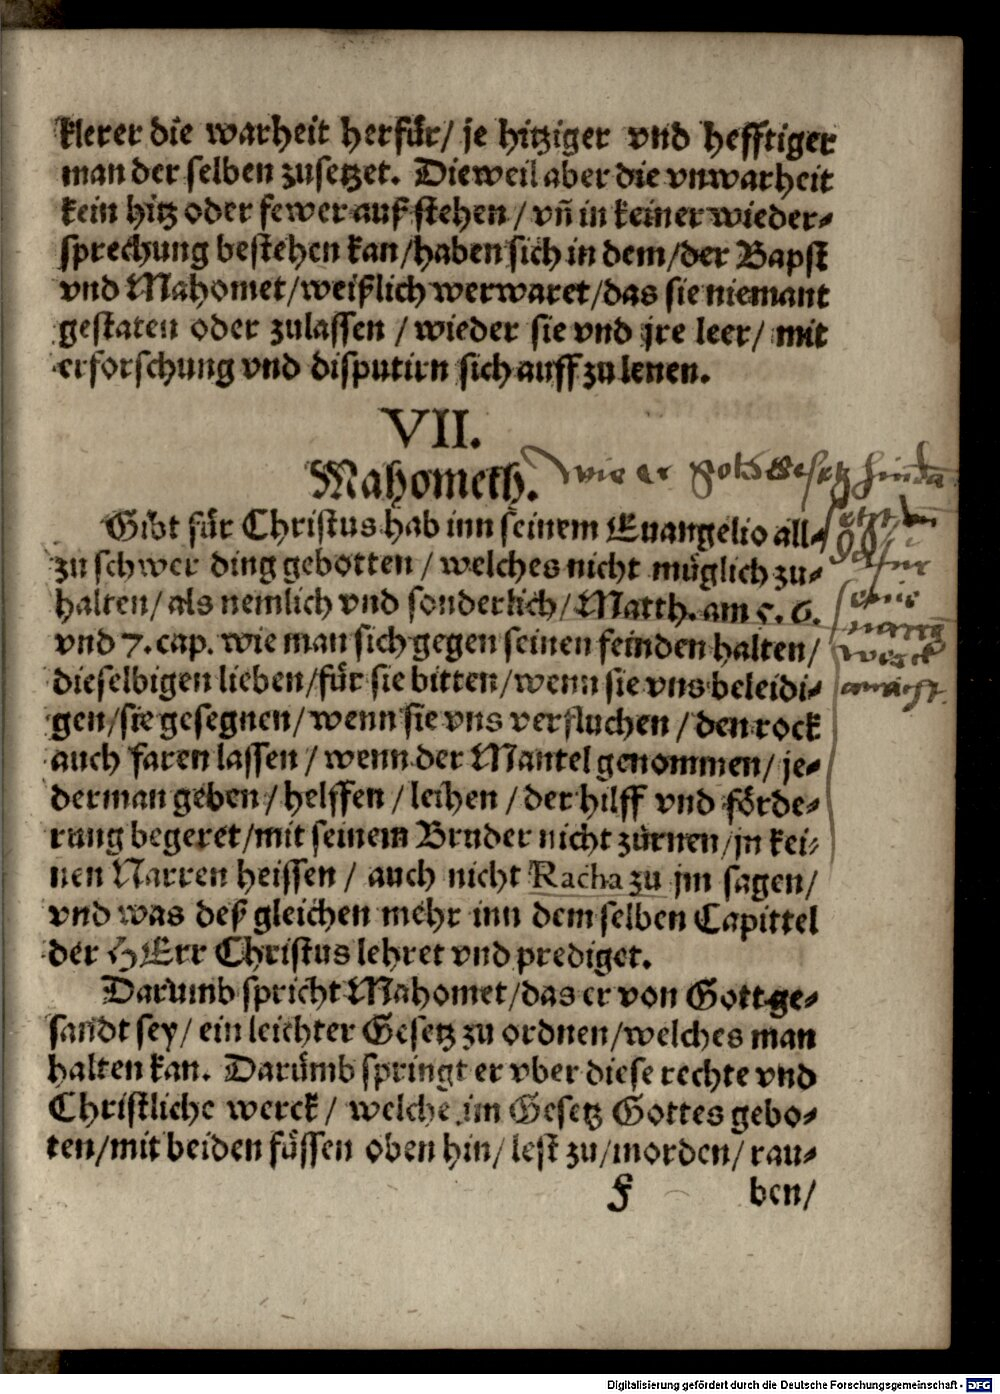 klerer die warheit herfür/ je hitziger vnd hefftiger
man der selben zusetzet. Dieweil aber die vnwarheit
kein hitz oder fewer auß stehen / vñ in keiner wieder-
sprechung bestehen kan/haben sich in dem/der Bapst
vnd Mahomet/weißlich werwaret/das sie niemant
gestaten oder zulassen / wieder sie vnd jre leer/ mit
erforschung vnd disputirn sich auff zu lenen.
VII.
Mahometh.
wie er gots Gesetz
Gibt für Christus hab inn seinem Euangelio all-
zu schwer ding gebotten / welches nicht müglich zu-
halten/ als nemlich vnd sonderlich/ Matth. am 5. 6.
vnd 7. cap. wie man sich gegen seinen feinden halten/
dieselbigen lieben/für sie bitten/wenn sie vns beleidi-
gen/sie gesegnen/wenn sie vns verfluchen / den rock
auch faren lassen / wenn der Mantel genommen/ je-
derman geben/helffen / leihen / der hilff vnd förde-
rung begeret/mit seinem Bruder nicht zürnen/jn kei-
nen Narren heissen / auch nicht Racha zu jm sagen/
vnd was deß gleichen mehr inn dem selben Capittel
der HErr Christus lehret vnd prediget.
Darumb spricht Mahomet/das er von Gott ge-
sandt sey/ ein leichter Gesetz zu ordnen/welches man
halten kan. Darümb springt er vber diese rechte vnd
Christliche werck / welche im Gesetz Gottes gebo-
ten/mit beiden füssen oben hin/ lest zu/morden/ rau-
F ben/
Digitalisierung gefördert durch die Deutsche Forschungsgemeinschaft - DFG